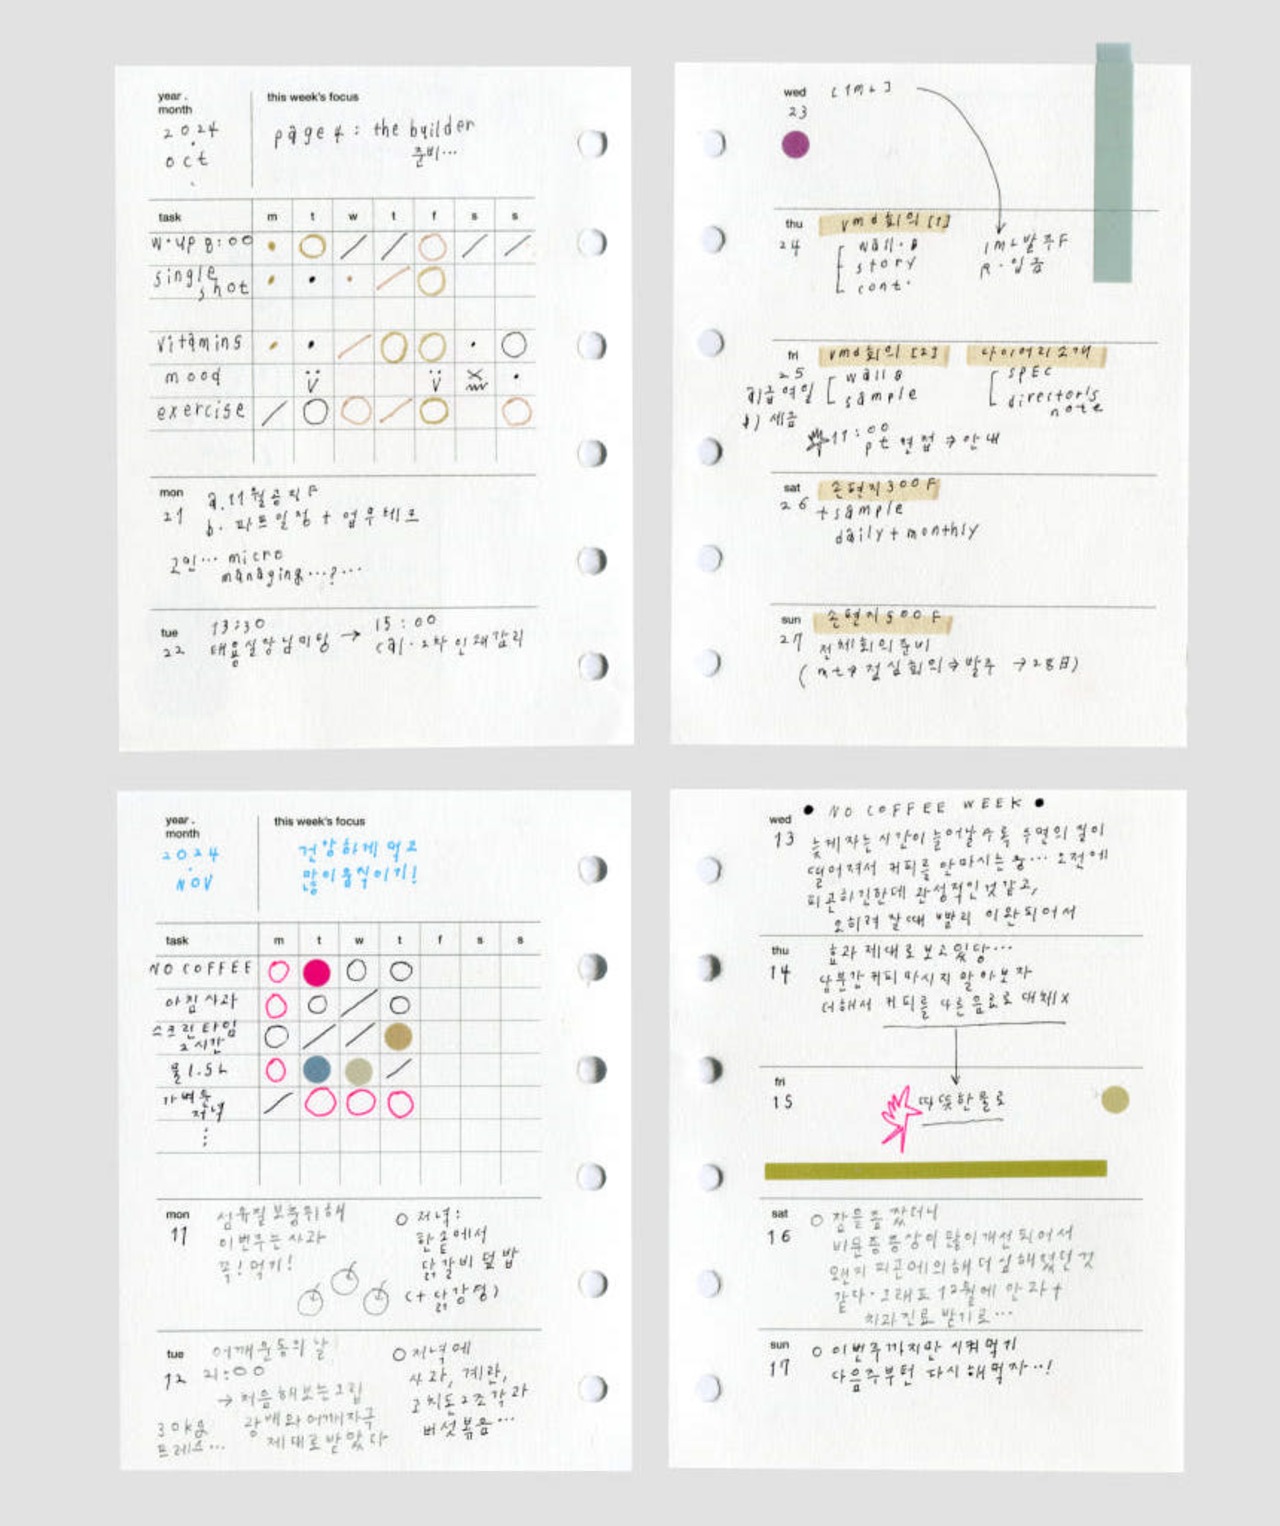 year.
month
2024
oct
this week's focus
page 4 : the builder
준비...
task m t w t f s s
w·up 8:00
single shot
vitamins
mood
exercise
mon
21
a. 11월공지F
b. 파트일정 + 업무체크
고민... micro
managing...?...
tue
22
13:30
태용실장님미팅 →
15:00
wed
23
thu
24
vmd회의 [1]
wall.B
story
cont.
1ML발주F
R.입금
fri
25
vmd회의 [2]
wall B
sample
다이어리소개
SPEC
director's
note
a) 급여일
b) 세금
11:00
pt 면접 → 안내
sat
26
손편지 300F
+ sample
daily + monthly
sun
27
손편지 500F
전체회의준비
(mt → 점심회의 → 발주 → 28日)
year.
month
2024
NOV
this week's focus
건강하게 먹고
많이움직이기!
task m t w t f s s
NO COFFEE
아침사과
스크린타임
2시간
물 1.5L
가벼운
저녁
⋮
mon
11
섬유질 보충위해
이번주는 사과
꼭! 먹기!
○ 저녁:
한솥에서
닭갈비 덮밥
(+ 닭강정)
tue
12
어깨운동의 날
21:00
→ 처음 해보는 그립
광배와 어깨자극
제대로 받았다
30kg
프레스...
○ 저녁에
사과, 계란,
고치돈 2조각과
버섯볶음...
● NO COFFEE WEEK ●
wed
13
늦게자는시간이 늘어날수록 수면의 질이
떨어져서 커피를 안마시는중... 오전에
피곤하긴한데 관성적인것 같고,
오히려 잘때 빨리 이완되어서
thu
14
효과 제대로 보고있당...
당분간 커피 마시지 말아보자
더해서 커피를 다른 음료로 대체 x
fri
15
따뜻한물로
sat
16
○ 잠을 좀 잤더니
비문증증상이 많이개선되어서
왠지 피곤에의해 더 심해졌던 것
같다. 그래도 12월에 안과 +
치과진료 받기로...
sun
17
○ 이번주까지만 시켜먹기
다음주부턴 다시 해먹자..!